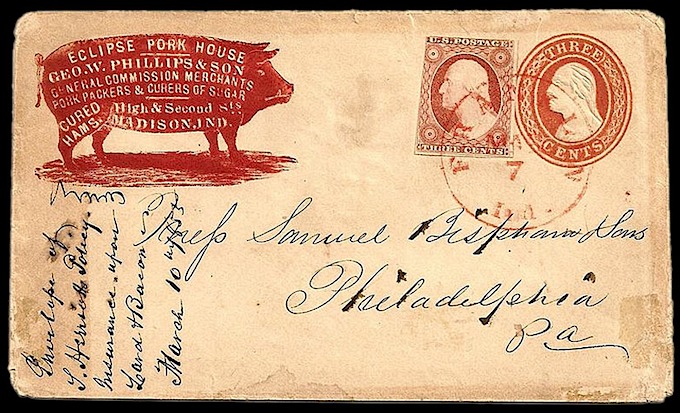 ECLIPSE PORK HOUSE
GEO. W. PHILLIPS & SON
GENERAL COMMISSION MERCHANTS
PORK PACKERS & CURERS OF SUGAR
CURED HAMS.
High & Second Sts.
MADISON, IND.
U.S. POSTAGE
THREE CENTS
THREE
CENTS
7
Mess Samuel Bispham & Sons
Philadelphia
Pa
Envelope of
Policy
Insurance upon
Lard & Bacon
March 10